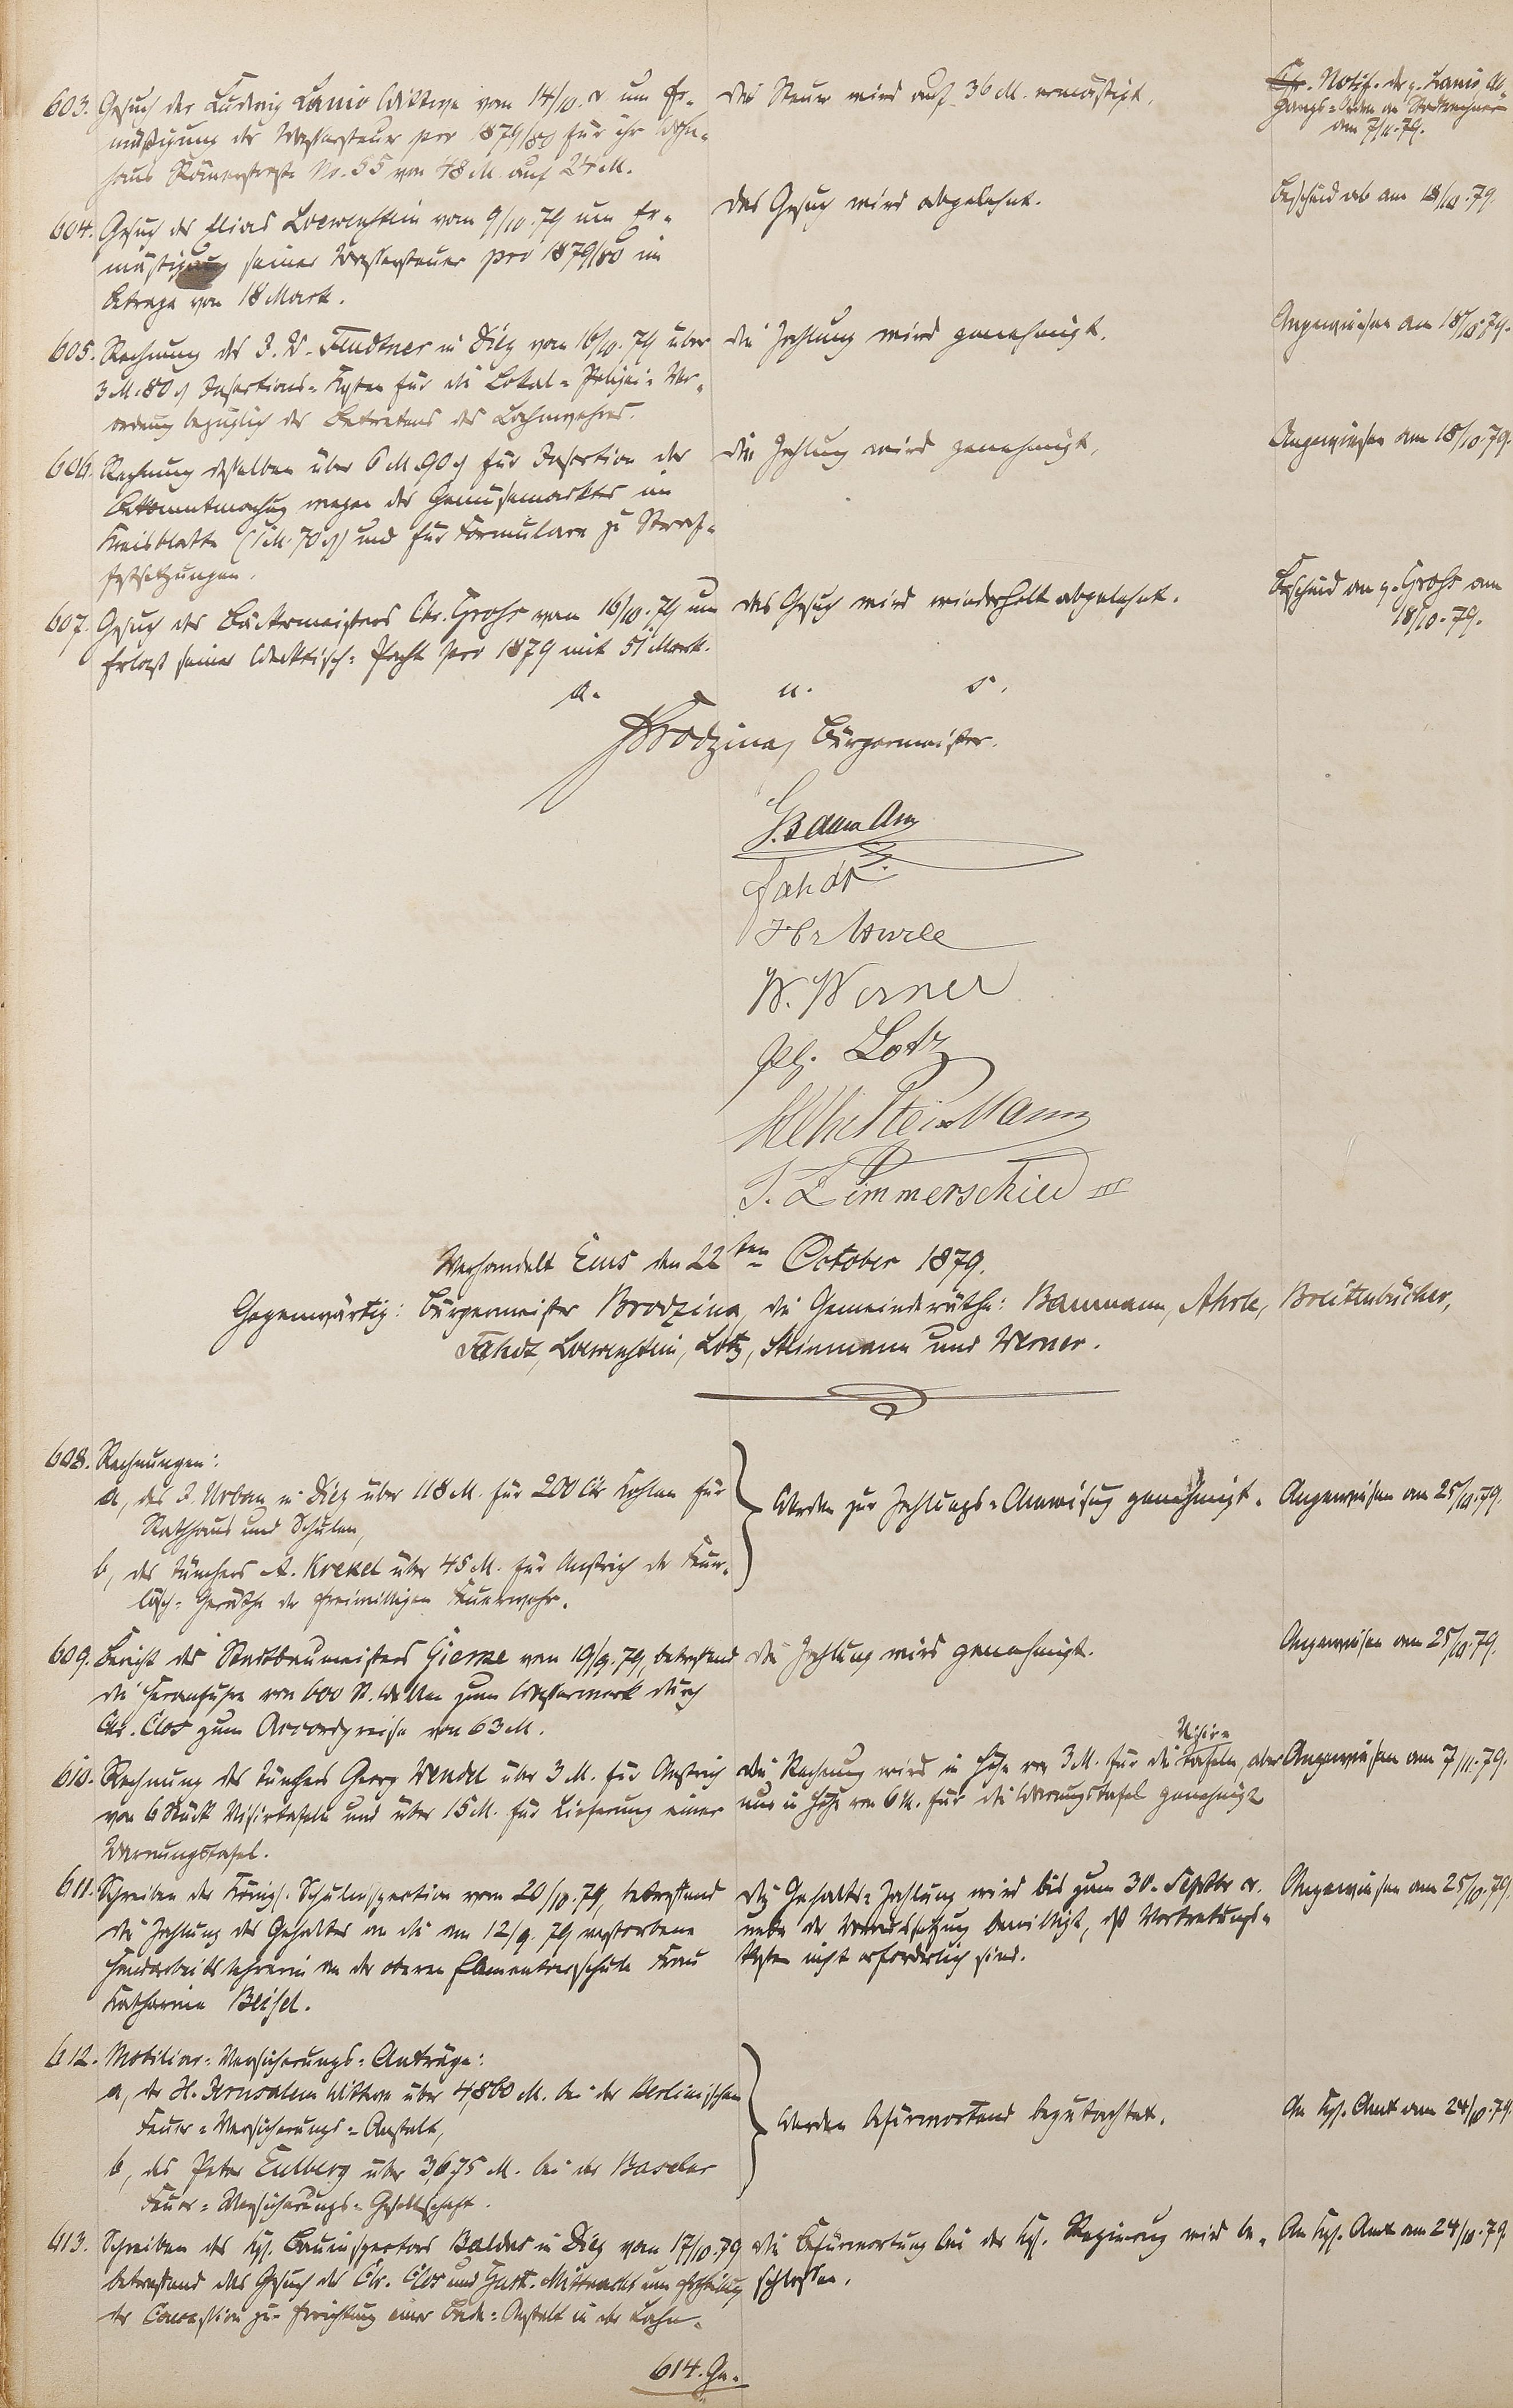 603. Gesuch der Ludwig Lanio Wittwe vom 14/10. cr. um Er-
mäßigung der Wassersteuer pro 1879/80 für ihr Wohn-
haus Römerstraße No. 55 von 48 M. auf 24 M.
Die Steuer wird auf 36 M. ermäßigt.
Notif. der p. Lanio, Ab-
gangs-Ordre an Stadtrechner
am 7/11.79.
604. Gesuch des Elias Loewenstein vom 9/10.79 um Er-
mäßigung seiner Wassersteuer pro 1879/80 im
Betrage von 18 Mark.
Das Gesuch wird abgelehnt.
Bescheid ab am 18/10.79.
605. Rechnung des J. D. Feudtner in Diez vom 16/10.79 über
3 M. 80 ₰ Insertions-Kosten für die Lokal-Polizei-Ver-
ordnung bezüglich des Betretens des Lahnwehres.
Die Zahlung wird genehmigt.
Angewiesen am 18/10.79.
606. Rechnung desselben über 6 M. 90 ₰ für Insertion der
Bekanntmachung wegen des Gemüsemarktes im
Kreisblatte (1 M. 70 ₰) und für Formulare zu Straf-
festsetzungen.
Die Zahlung wird genehmigt.
Angewiesen am 18/10.79.
607. Gesuch des Bäckermeisters Chr. Grohs vom 16/10.79 um
Erlaß seiner Pacht pro 1879 mit 51 Mark.
Das Gesuch wird wiederholt abgelehnt.
Bescheid an p. Grohs am
18/10.79.
a. u. s.
Brodzina, Bürgermeister.
G. Baumann
Fahdt
W. Werner
Lotz
Steinmann
J. Zimmerschied III
Verhandelt Ems den 22ten October 1879.
Gegenwärtig: Bürgermeister Brodzina, die Gemeinderäthe: Baumann, Ahrle, Breitenbücher,
Fahdt, Loewenstein, Lotz, Steinmann und Werner.
608. Rechnungen:
a, des J. Urban in Diez über 118 M. für 200 Ctr Kohlen für
Rathhaus und Schulen,
b, des Tünchers A. Krekel über 45 M. für Anstrich der Feuer-
lösch-Geräthe der freiwilligen Feuerwehr.
Werden zur Zahlungs-Anweisung genehmigt.
Angewiesen am 25/10.79.
609. Bericht des Stadtbaumeisters Gierse vom 19/9.79, betreffend
die Heranfuhre von 600 St. Wellen zum Wasserwerk durch
Chr. Clos zum Accordpreise von 63 M.
Die Zahlung wird genehmigt.
Angewiesen am 25/10.79.
610. Rechnung des Tünchers Georg Wendel über 3 M. für Anstrich
von 6 Stück Visirtafeln und über 15 M. für Lieferung einer
Warnungstafel.
Die Rechnung wird in Höhe von 3 M. für die Visir-tafeln, aber
nur in Höhe von 6 M. für die Warnungstafel genehmigt
Angewiesen am 7/11.79.
611. Schreiben der Königl. Schulinspection vom 20/10.79, betreffend
die Zahlung des Gehaltes an die am 12/9.79 verstorbene
Handarbeitslehrerin an der oberen Elementarschule Frau
Katharine Beisel.
Die Gehalts-Zahlung wird bis zum 30. Septbr cr.
unter der Voraussetzung bewilligt, daß Vertretungs-
kosten nicht erforderlich sind.
Angewiesen am 25/10.79.
612. Mobiliar-Versicherungs-Anträge:
a, der H. Jerusalem Wittwe über 4,860 M. bei der Berlinischen
Feuer-Versicherungs-Anstalt,
b, des Peter Eulberg über 3,675 M. bei der Baseler
Feuer-Versicherungs-Gesellschaft.
Werden befürwortend begutachtet.
An Kgl. Amt am 24/10.79.
613. Schreiben des Kgl. Bauinspectors Baldus in Diez vom 17/10.79
betreffend das Gesuch des Chr. Clos und Gust. um Ertheilung
der Concession zur Errichtung einer Bade-Anstalt in der Lahn.
Die Befürwortung bei der Kgl. Regierung wird be-
schlossen.
An Kgl. Amt am 24/10.79
614. Ge-